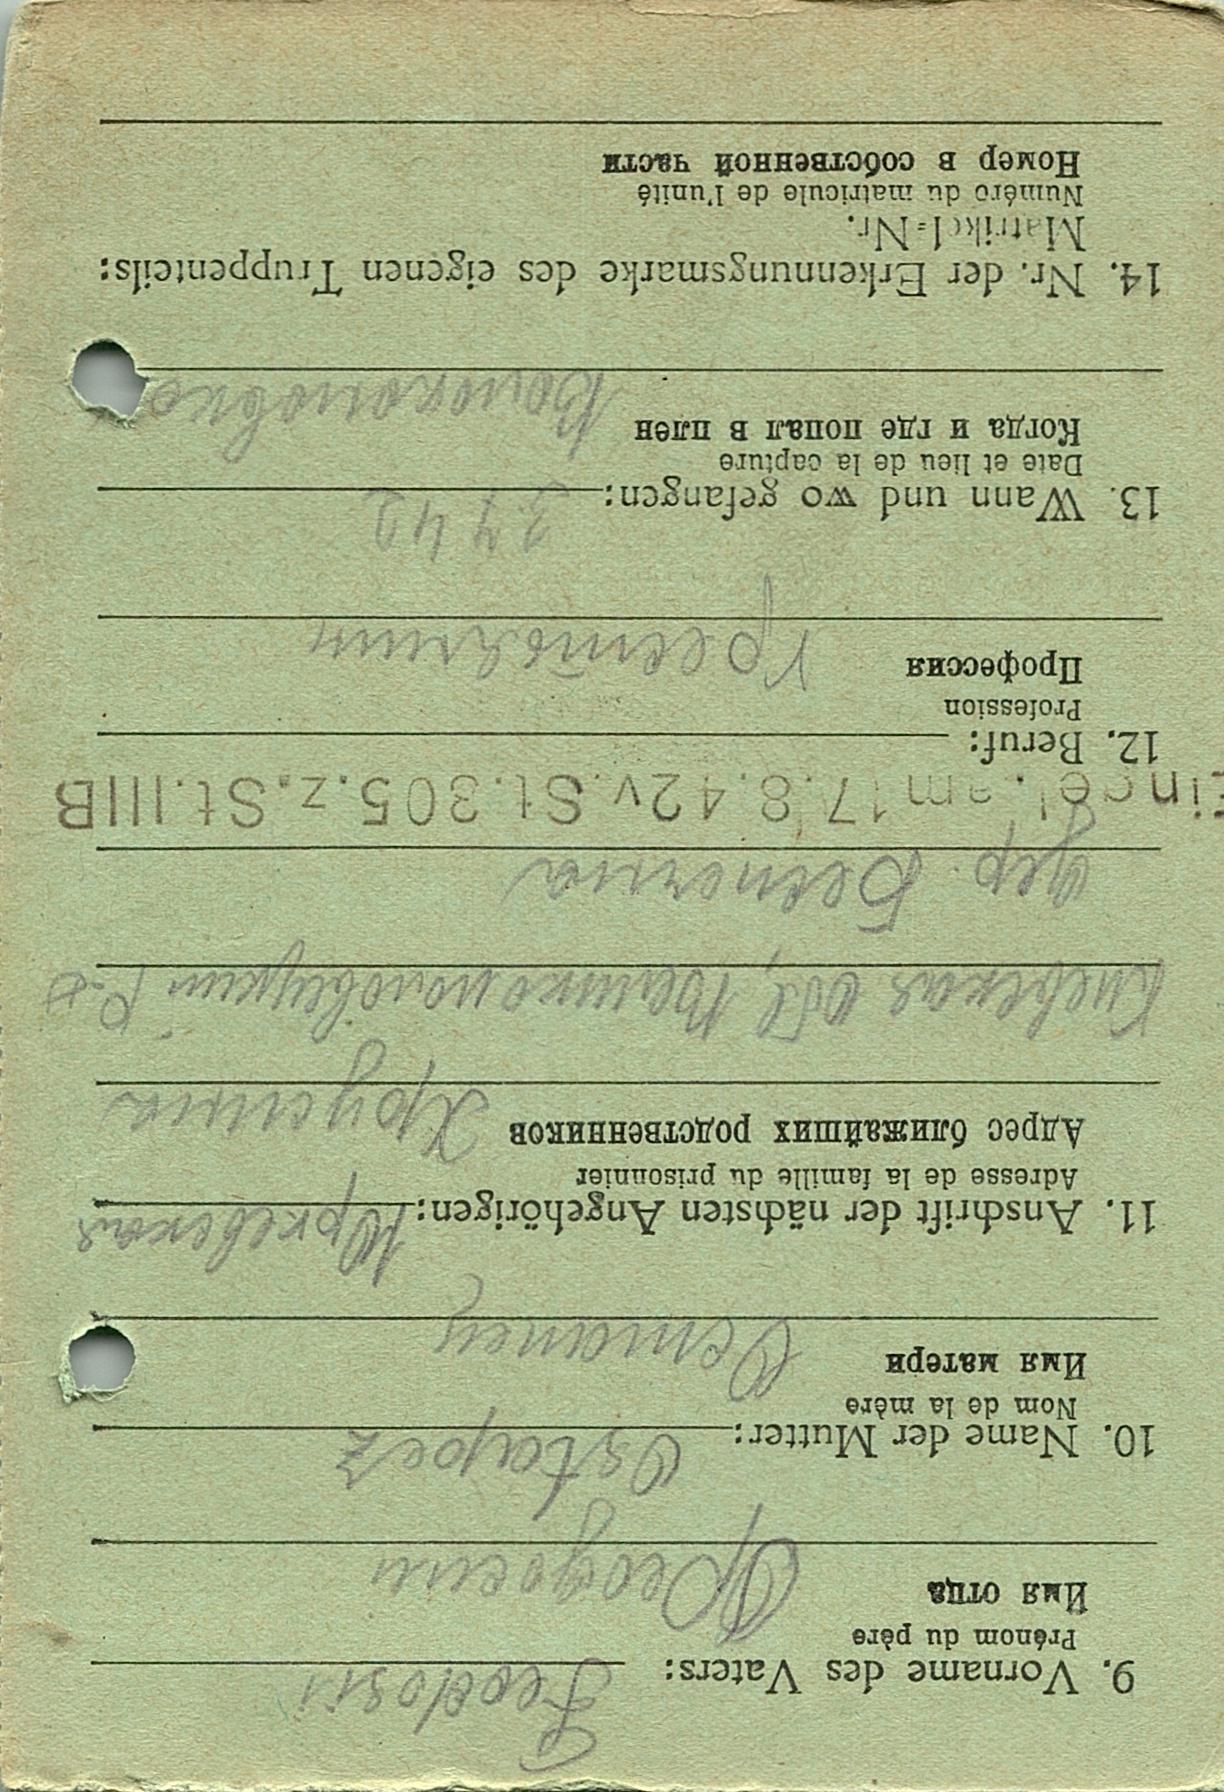 9. Vorname des Vaters: Feodosii
Prénom du père
Имя отца Феодосий
10. Name der Mutter: Ostapez
Nom de la mère
Имя матери Остапец
11. Anschrift der nächsten Angehörigen:
Adresse de la famille du prisonnier
Адрес ближайших родственников
обл,
дер.
Eingel. am 17.8.42 v. St.305.z.St.IIIB
12. Beruf:
Profession
Профессия
13. Wann und wo gefangen: 3 7 42
Date et lieu de la capture
Когда и где попал в плен
14. Nr. der Erkennungsmarke des eigenen Truppenteils:
Matrikel=Nr.
Numéro du matricule de l'unité
Номер в собственной части